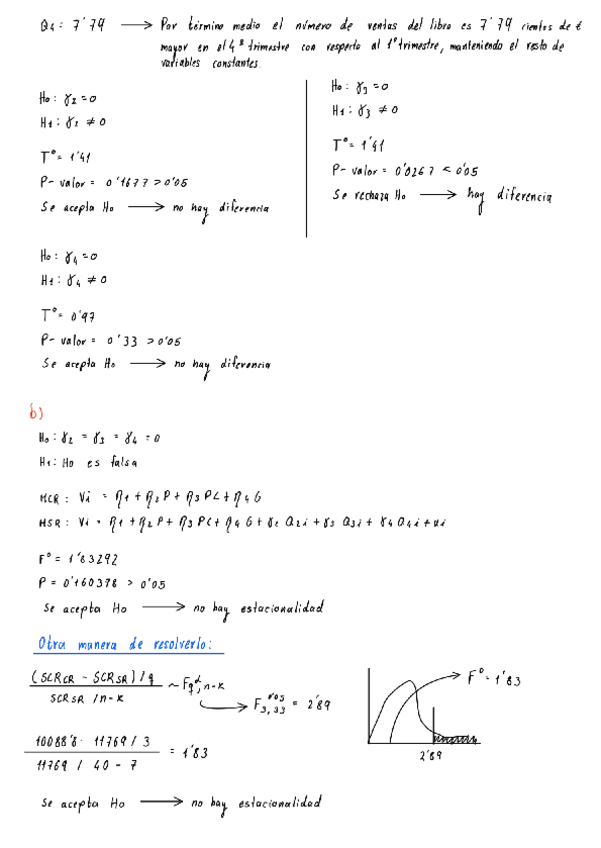 Q4: 7'79 → Por término medio el número de ventas del libro es 7'79 cientos de €
mayor en el 4º trimestre con respecto al 1º trimestre, manteniendo el resto de
variables constantes.
H0: γ2 = 0
H1: γ2 ≠ 0
Tº = 1'41
P- valor = 0'1677 > 0'05
Se acepta H0 → no hay diferencia
H0: γ3 = 0
H1: γ3 ≠ 0
Tº = 1'41
P- valor = 0'0267 < 0'05
Se rechaza H0 → hay diferencia
H0: γ4 = 0
H1: γ4 ≠ 0
Tº = 0'97
P- valor = 0'33 > 0'05
Se acepta H0 → no hay diferencia
b)
H0: γ2 = γ3 = γ4 = 0
H1: H0 es falsa
MCR: Vi = η1 + η2 P + η3 PC + η4 G
MSR: Vi = η1 + η2 P + η3 PC + η4 G + γ2 Q2i + γ3 Q3i + γ4 Q4i + ui
Fº = 1'83292
P = 0'160378 > 0'05
Se acepta H0 → no hay estacionalidad
Otra manera de resolverlo:
(SCRCR - SCRSR) / q
SCRSR / n-k
~ Fq, n-k α → F3,33 0'05 = 2'89
Fº = 1'83
2'89
11769 / 3
11769 / 40 - 7
= 1'83
Se acepta H0 → no hay estacionalidad